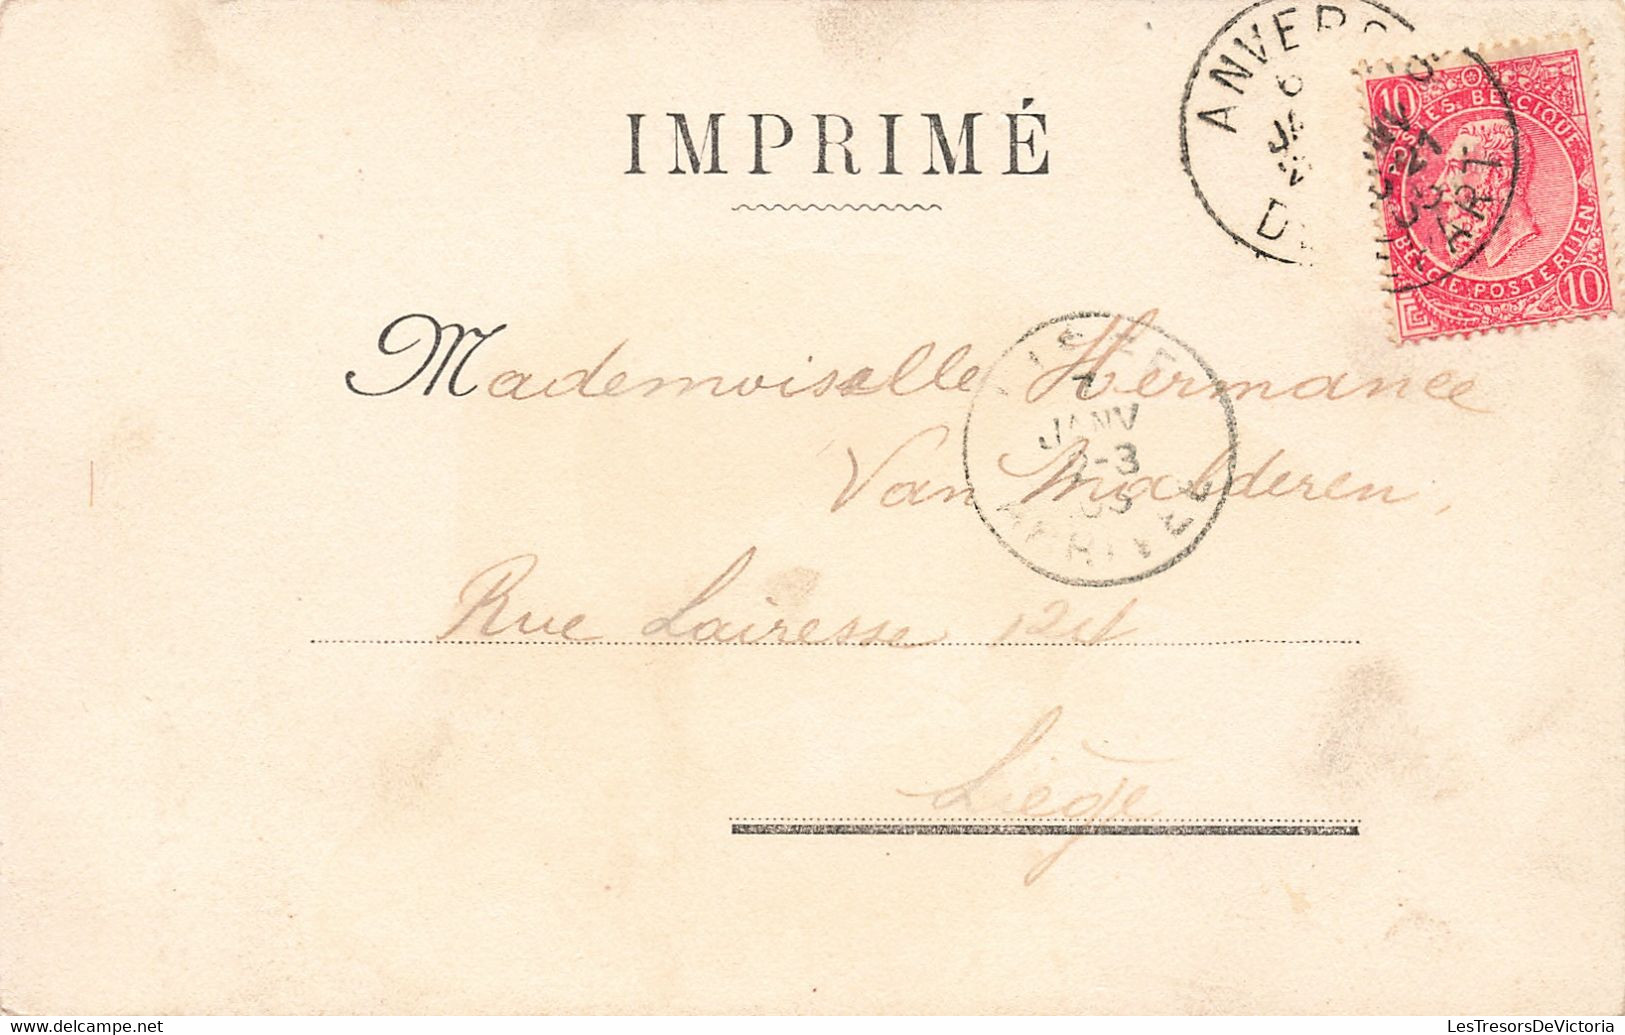 IMPRIMÉ
ANVERS
6
10
POSTES. BELGIQUE
BELGIE. POSTERIJEN
10
Mademoiselle Hermance
Van Malderen,
7
JANV
2-3
Rue Lairesse 124
Liège
www.delcampe.net
LesTresorsDeVictoria